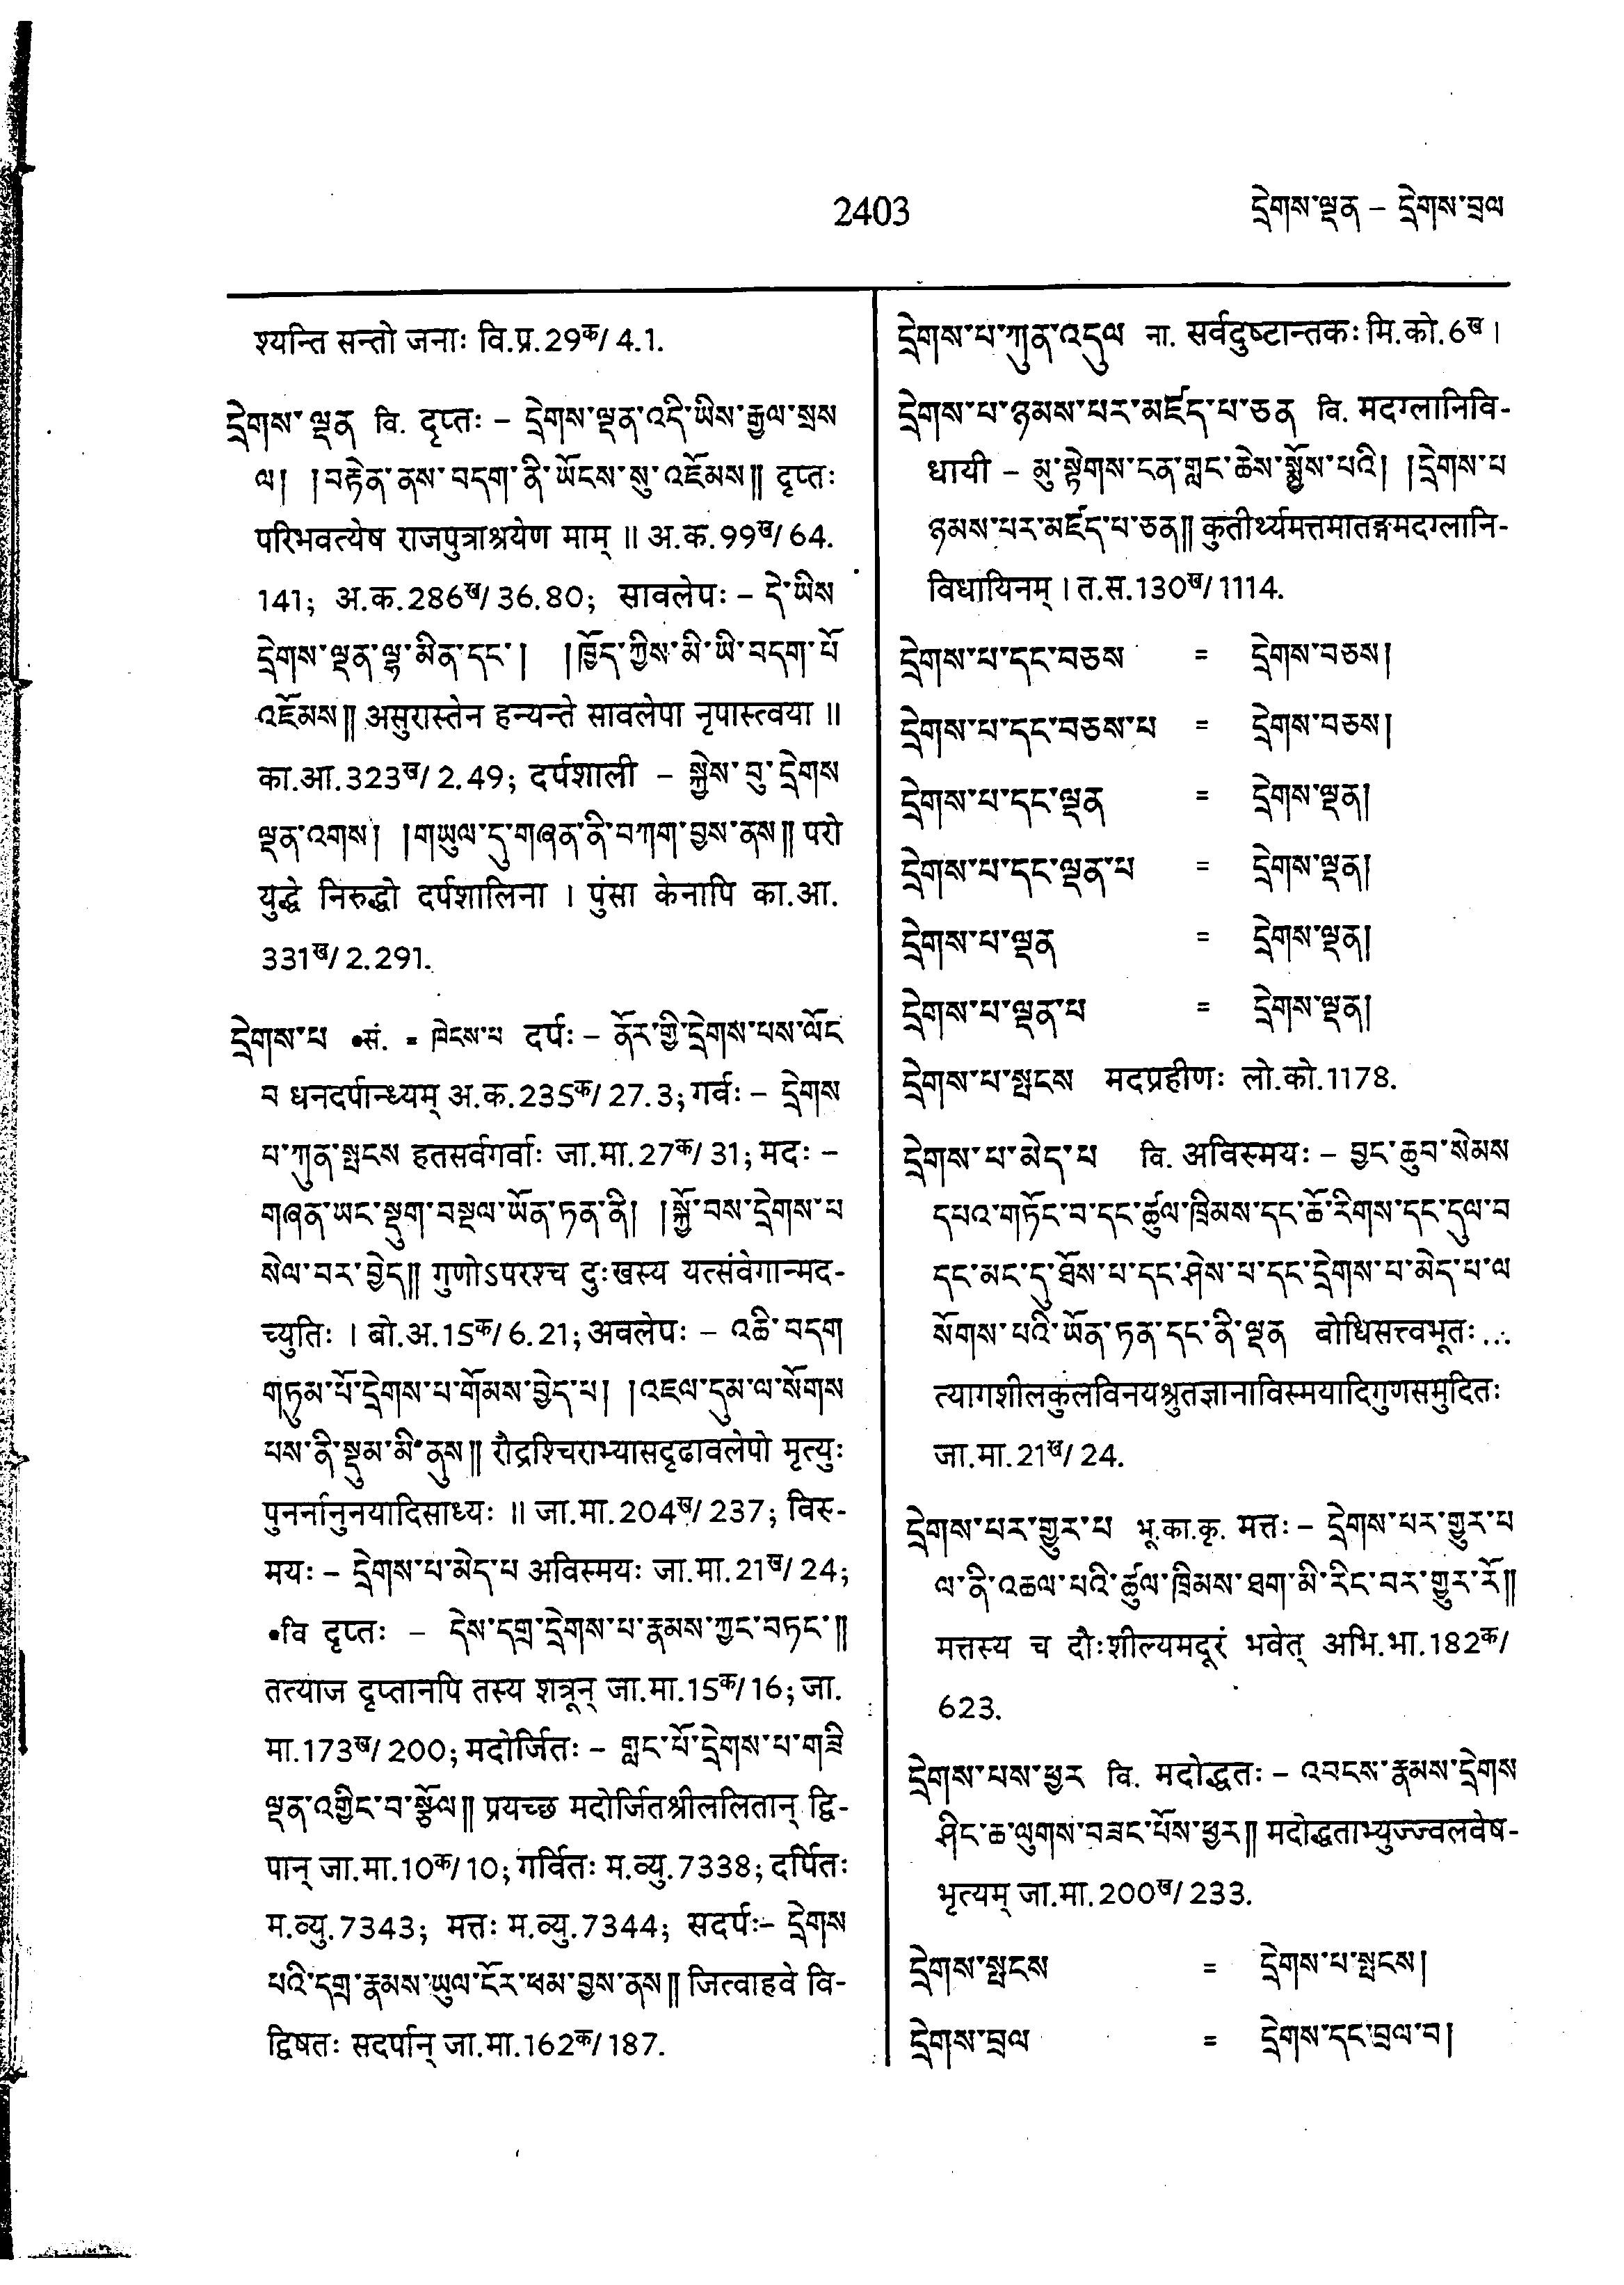 2403
དྲེགས་ལྡན – དྲེགས་བྲལ
श्यन्ति सन्तो जनाः वि.प्र.29क/4.1.
དྲེགས་ལྡན वि. दृप्तः – དྲེགས་ལྡན་འདི་ཡིས་རྒྱལ་སྲས
ལ། །བརྟེན་ནས་བདག་ནི་ཡོངས་སུ་འཇོམས༎ दृप्तः
परिभवत्येष राजपुत्राश्रयेण माम् ॥ अ.क.99ख/64.
141; अ.क.286ख/36.80; सावलेपः – དེ་ཡིས
དྲེགས་ལྡན་ལྷ་མིན་དང་། །ཁྱོད་ཀྱིས་མི་ཡི་བདག་པོ
འཇོམས༎ असुरास्तेन हन्यन्ते सावलेपा नृपास्त्वया ॥
का.आ.323ख/2.49; दर्पशाली – སྐྱེས་བུ་དྲེགས
ལྡན་འགས། །གཡུལ་དུ་གཞན་ནི་བཀག་བྱས་ནས༎ परो
युद्धे निरुद्धो दर्पशालिना । पुंसा केनापि का.आ.
331ख/2.291.
དྲེགས་པ •सं. = ཁེངས་པ दर्पः – ནོར་གྱི་དྲེགས་པས་ལོང
བ धनदर्पान्ध्यम् अ.क.235क/27.3; गर्वः – དྲེགས
པ་ཀུན་སྤངས हतसर्वगर्वाः जा.मा.27क/31; मदः –
གཞན་ཡང་སྡུག་བསྔལ་ཡོན་ཏན་ནི། །སྐྱོ་བས་དྲེགས་པ
སེལ་བར་བྱེད༎ गुणोऽपरश्च दुःखस्य यत्संवेगान्मद-
च्युतिः । बो.अ.15क/6.21; अवलेपः – འཆི་བདག
གཏུམ་པོ་དྲེགས་པ་གོམས་བྱེད་པ། །འཇལ་དུམ་ལ་སོགས
པས་ནི་སྡུམ་མི་ནུས༎ रौद्रश्चिराभ्यासदृढावलेपो मृत्युः
पुनर्नानुनयादिसाध्यः ॥ जा.मा.204ख/237; विस्-
मयः – དྲེགས་པ་མེད་པ अविस्मयः जा.मा.21ख/24;
•वि दृप्तः – དེས་དགྲ་དྲེགས་པ་རྣམས་ཀྱང་བཏང་༎
तत्याज दृप्तानपि तस्य शत्रून् जा.मा.15क/16; जा.
मा.173ख/200; मदोर्जितः – གླང་པོ་དྲེགས་པ་གཟི
ལྡན་འགྱིང་བ་སྩོལ༎ प्रयच्छ मदोर्जितश्रीललितान् द्वि-
पान् जा.मा.10क/10; गर्वितः म.व्यु.7338; दर्पितः
म.व्यु.7343; मत्तः म.व्यु.7344; सदर्पः– དྲེགས
པའི་དགྲ་རྣམས་ཡུལ་ངོར་ཕམ་བྱས་ནས༎ जित्वाहवे वि-
द्विषतः सदर्पान् जा.मा.162क/187.
དྲེགས་པ་ཀུན་འདུལ ना. सर्वदुष्टान्तकः मि.को.6ख ।
དྲེགས་པ་ཉམས་པར་མཛད་པ་ཅན वि. मदग्लानिवि-
धायी – མུ་སྟེགས་ངན་གླང་ཆེས་སྨྱོས་པའི། །དྲེགས་པ
ཉམས་པར་མཛད་པ་ཅན༎ कुतीर्थ्यमत्तमातङ्गमदग्लानि-
विधायिनम् । त.स.130ख/1114.
དྲེགས་པ་དང་བཅས = དྲེགས་བཅས།
དྲེགས་པ་དང་བཅས་པ = དྲེགས་བཅས།
དྲེགས་པ་དང་ལྡན = དྲེགས་ལྡན།
དྲེགས་པ་དང་ལྡན་པ = དྲེགས་ལྡན།
དྲེགས་པ་ལྡན = དྲེགས་ལྡན།
དྲེགས་པ་ལྡན་པ = དྲེགས་ལྡན།
དྲེགས་པ་སྤངས मदप्रहीणः लो.को.1178.
དྲེགས་པ་མེད་པ वि. अविस्मयः – བྱང་ཆུབ་སེམས
དཔའ་གཏོང་བ་དང་ཚུལ་ཁྲིམས་དང་ཆོ་རིགས་དང་དུལ་བ
དང་མང་དུ་ཐོས་པ་དང་ཤེས་པ་དང་དྲེགས་པ་མེད་པ་ལ
སོགས་པའི་ཡོན་ཏན་དང་ནི་ལྡན बोधिसत्त्वभूतः...
त्यागशीलकुलविनयश्रुतज्ञानाविस्मयादिगुणसमुदितः
जा.मा.21ख/24.
དྲེགས་པར་གྱུར་པ भू.का.कृ. मत्तः – དྲེགས་པར་གྱུར་པ
ལ་ནི་འཆལ་པའི་ཚུལ་ཁྲིམས་ཐག་མི་རིང་བར་གྱུར་རོ༎
मत्तस्य च दौःशील्यमदूरं भवेत् अभि.भा.182क/
623.
དྲེགས་པས་ཕྱར वि. मदोद्धतः – འབངས་རྣམས་དྲེགས
ཤིང་ཆ་ལུགས་བཟང་པོས་ཕྱར༎ मदोद्धताभ्युज्ज्वलवेष-
भृत्यम् जा.मा.200ख/233.
དྲེགས་སྤངས = དྲེགས་པ་སྤངས།
དྲེགས་བྲལ = དྲེགས་དང་བྲལ་བ།